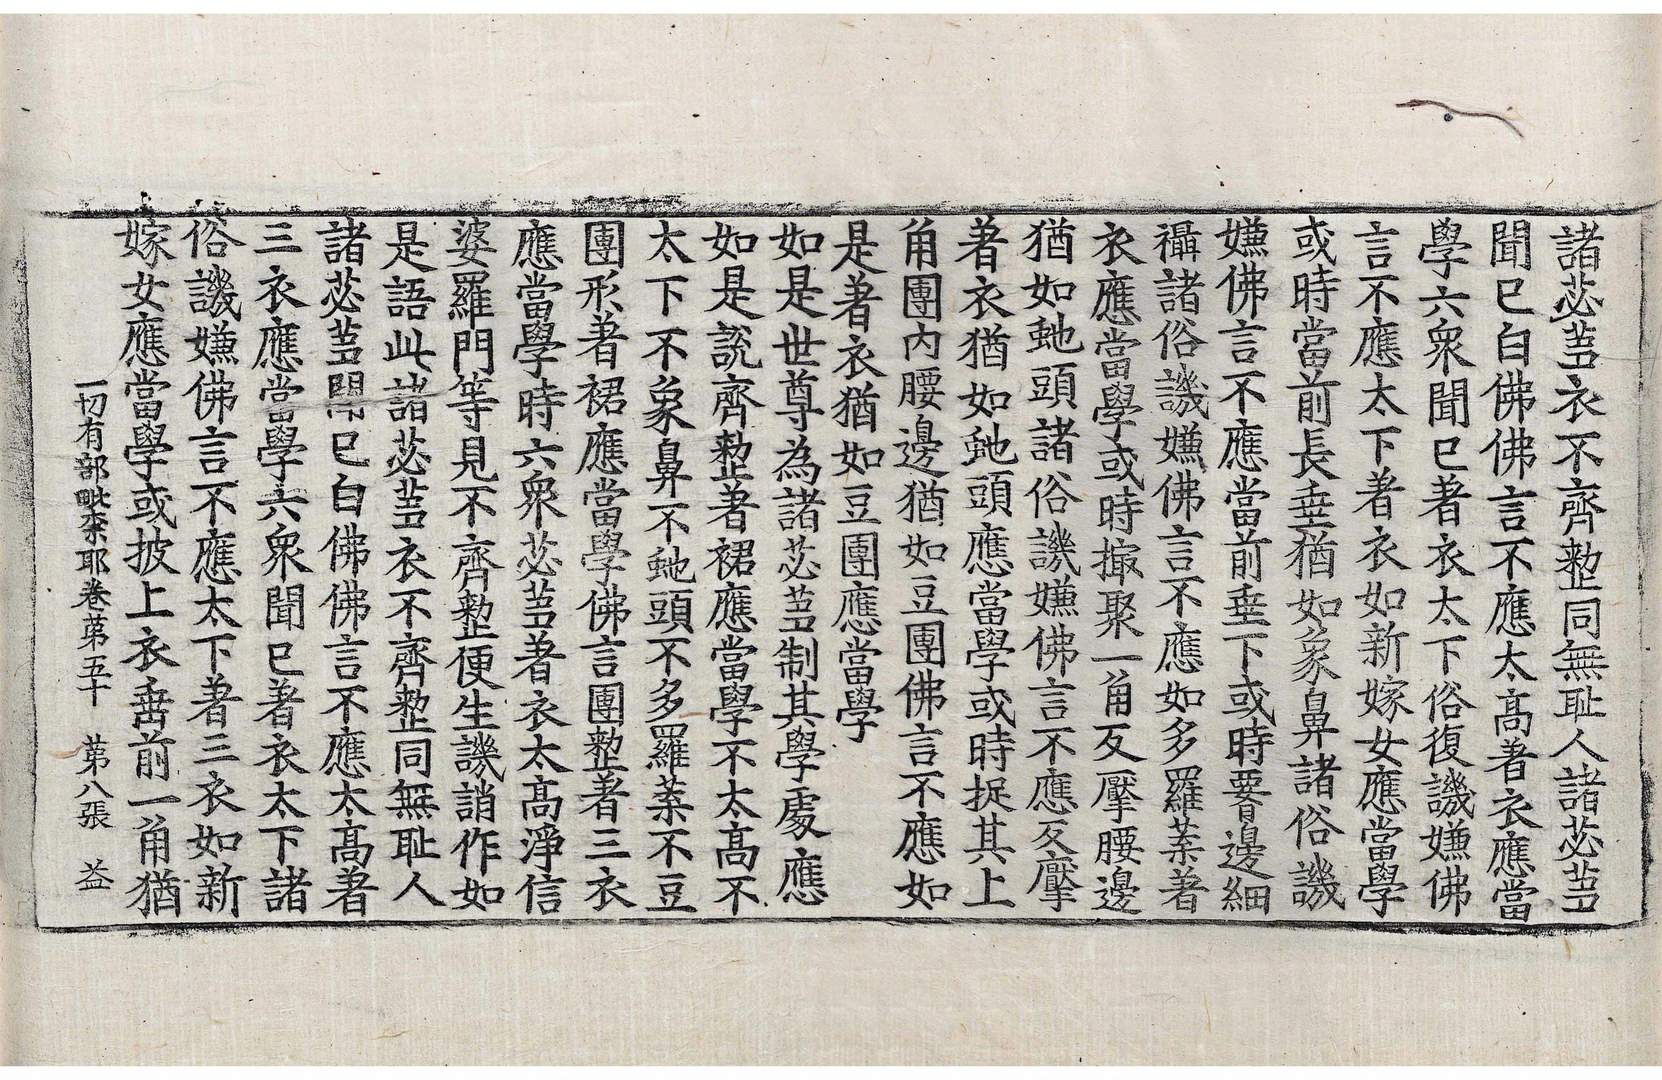 諸苾芻衣不齊整同無耻人諸苾芻
聞已白佛佛言不應太高著衣應當
學六衆聞已著衣太下俗復譏嫌佛
言不應太下著衣如新嫁女應當學
或時當前長垂猶如象鼻諸俗譏
嫌佛言不應當前垂下或時腰邊細
襵諸俗譏嫌佛言不應如多羅葉著
衣應當學或時撮聚一角反壓腰邊
猶如虵頭諸俗譏嫌佛言不應反壓
著衣猶如虵頭應當學或時捉其上
角團內腰邊猶如豆團佛言不應如
是著衣猶如豆團應當學
如是世尊為諸苾芻制其學處應
如是說齊整著裙應當學不太高不
太下不象鼻不虵頭不多羅葉不豆
團形著裙應當學佛言團整著三衣
應當學時六衆苾芻著衣太高淨信
婆羅門等見不齊整便生譏誚作如
是語此諸苾芻衣不齊整同無耻人
諸苾芻聞已白佛佛言不應太高著
三衣應當學六衆聞已著衣太下諸
俗譏嫌佛言不應太下著三衣如新
嫁女應當學或披上衣垂前一角猶
一切有部毗奈耶卷第五十 第八張 益